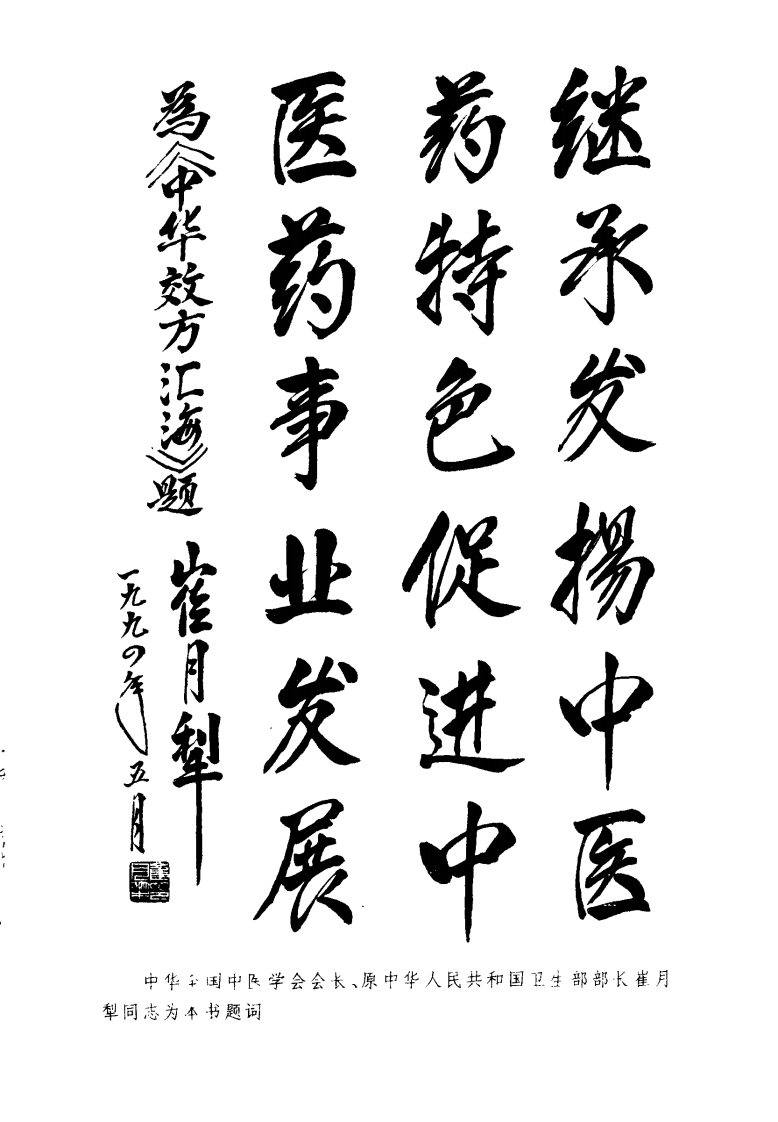 继承发揚中医
药特色促进中
医药事业发展
為《中华效方汇海》题
崔月犁
一九九四年五月
中华全国中医学会会长、原中华人民共和国卫生部部长崔月
犁同志为本书题词